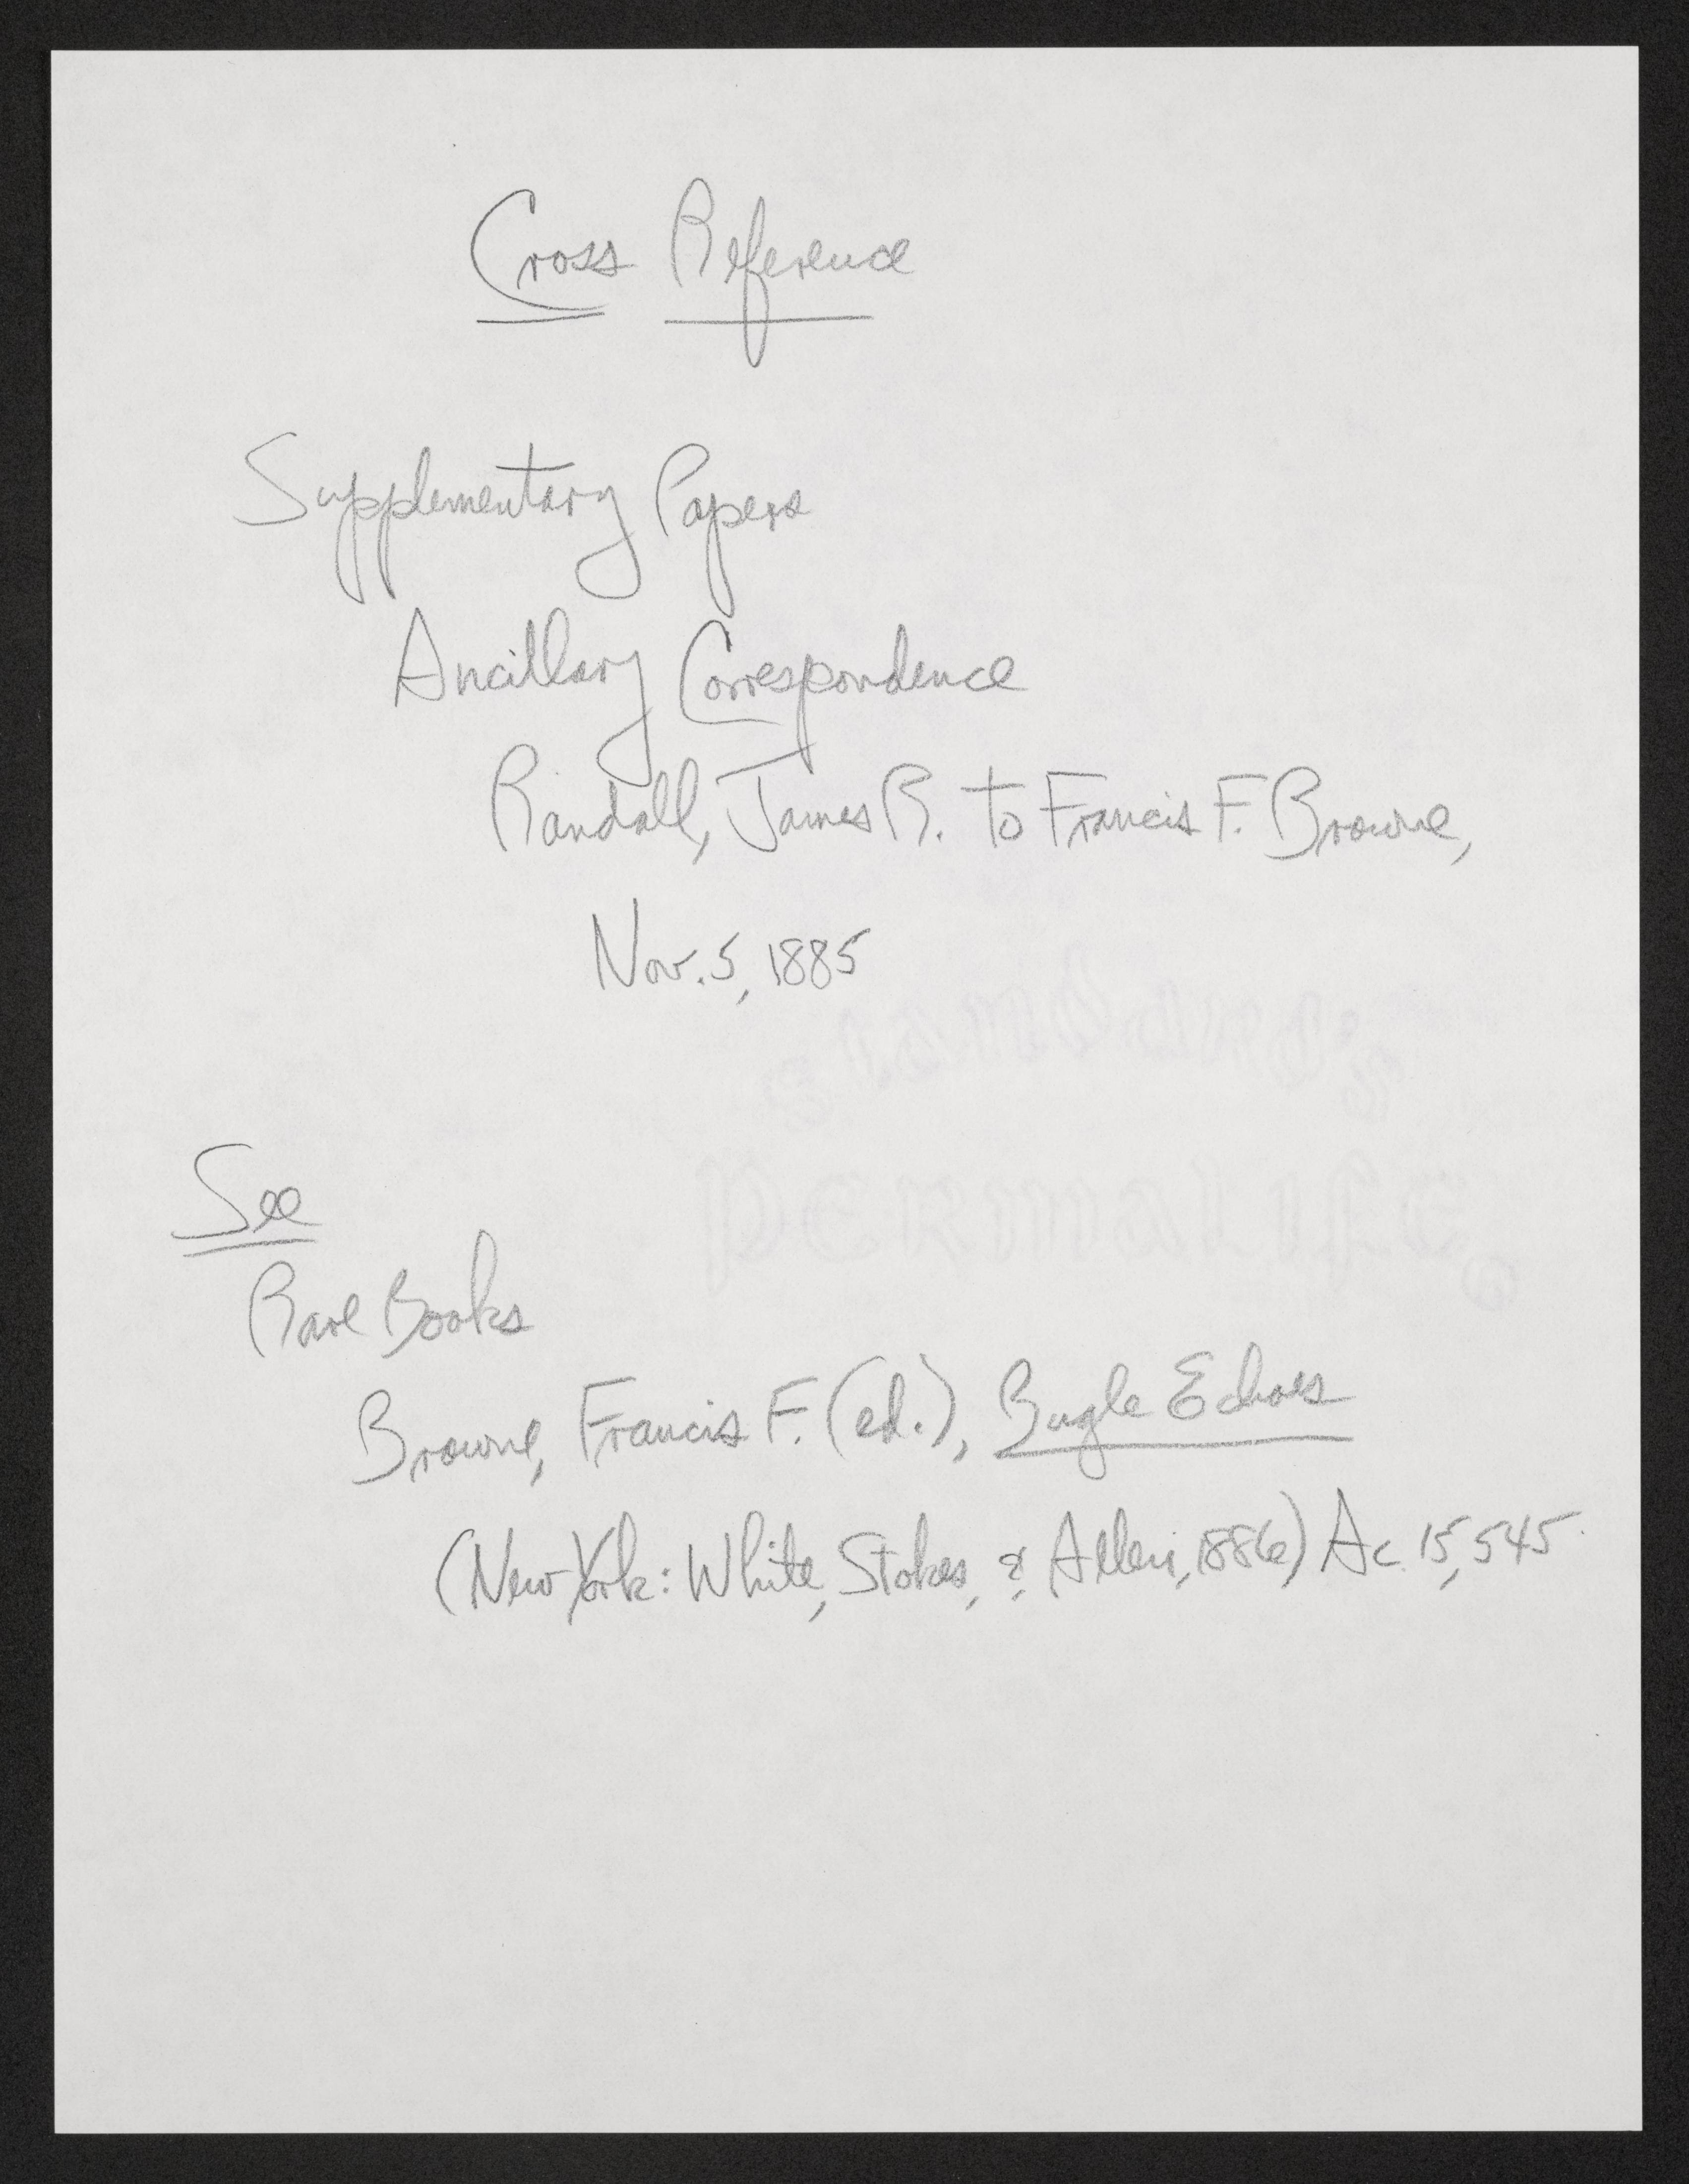 Cross Reference
Supplementary Papers
Ancillary Correspondence
Randall, James R. to Francis F. Browne,
Nov. 5, 1885
See
Rare Books
Browne, Francis F. (ed.), Bugle Echoes
(New York: White, Stokes, & Allen, 1886) Ac. 15,545